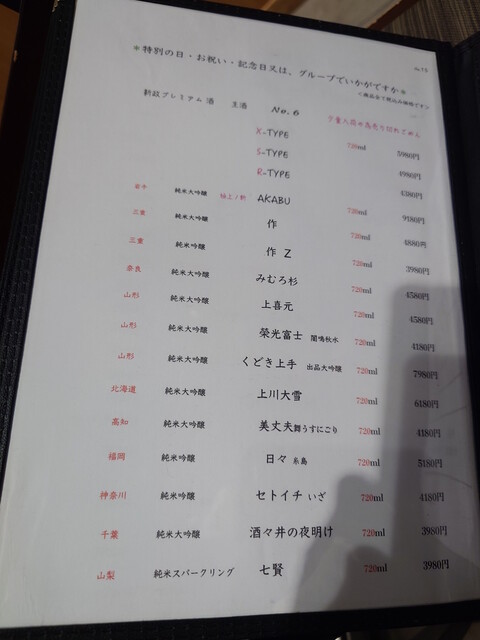 ＊特別の日・お祝い・記念日又は、グループでいかがですか＊
＜商品全て税込み価格です＞
新政プレミアム酒 生酒 No.6 少量入荷の為売り切れごめん
X-TYPE 720ml 5980円
S-TYPE 4980円
R-TYPE 4380円
岩手 純米大吟醸 極上ノ斬 AKABU 720ml 9180円
三重 純米大吟醸 作 720ml 4880円
三重 純米吟醸 作 Z 720ml 3980円
奈良 純米大吟醸 みむろ杉 720ml 4580円
山形 純米大吟醸 上喜元 720ml 4580円
山形 純米大吟醸 榮光富士 闇鳴秋水 720ml 4180円
山形 純米大吟醸 くどき上手 出品大吟醸 720ml 7980円
北海道 純米大吟醸 上川大雪 720ml 6180円
高知 純米大吟醸 美丈夫 舞うすにごり 720ml 4180円
福岡 純米吟醸 日々 糸島 720ml 5180円
神奈川 純米吟醸 セトイチ いざ 720ml 4180円
千葉 純米大吟醸 酒々井の夜明け 720ml 3980円
山梨 純米スパークリング 七賢 720ml 3980円